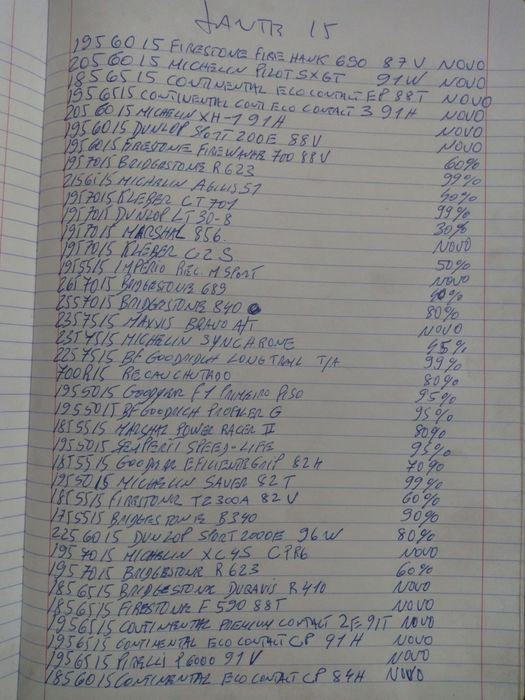 JANTE 15
195 60 15 FIRESTONE FIRE HAWK 690 87V NOVO
205 60 15 MICHELIN PILOT SX GT 91W NOVO
185 65 15 CONTINENTAL ECO CONTACT EP 88T NOVO
195 65 15 CONTINENTAL CONTI ECO CONTACT 3 91H NOVO
205 60 15 MICHELIN XH-1 91H NOVO
195 60 15 DUNLOP SPORT 200E 88V NOVO
195 60 15 FIRESTONE FIREHAWK 700 88V NOVO
195 70 15 BRIDGESTONE R623 60%
215 65 15 MICHELIN AGILIS 51 99%
195 70 15 KLEBER CT 701
195 70 15 DUNLOP LT 30-8 99%
195 70 15 MARSHAL 856 30%
195 70 15 KLEBER C2 S NOVO
195 55 15 IMPÉRIO REC. M SPORT 50%
265 70 15 BRIDGESTONE 689 NOVO
255 70 15 BRIDGESTONE 840
235 75 15 MAXXIS BRAVO A/T 80%
MICHELIN SYNCHRONE NOVO
225 75 15 BF GOODRICH LONG TRAIL T/A
700 R15 RECAUCHUTADO 99%
195 50 15 GOODYEAR F1 PRIMEIRO PISO 80%
195 50 15 BF GOODRICH PROFILER G 95%
185 55 15 MARSHAL POWER RACER II 95%
195 50 15 SEMPERIT SPEED-LIFE 80%
185 55 15 GOODYEAR EFICIENTGRIP 82H 95%
195 50 15 MICHELIN SAVER 82T 70%
185 55 15 FIRESTONE TZ300A 82V 99%
175 55 15 BRIDGESTONE B340 60%
225 60 15 DUNLOP SPORT 2000E 96W 90%
195 70 15 MICHELIN XC4S CPR6 80%
195 70 15 BRIDGESTONE R623 NOVO
185 65 15 BRIDGESTONE DURAVIS R410 60%
185 65 15 FIRESTONE F590 88T NOVO
195 65 15 CONTINENTAL PREMIUM CONTACT 2E 91T NOVO
195 65 15 CONTINENTAL ECO CONTACT CP 91H NOVO
195 65 15 PIRELLI P6000 91V NOVO
185 60 15 CONTINENTAL ECO CONTACT CP 84H NOVO